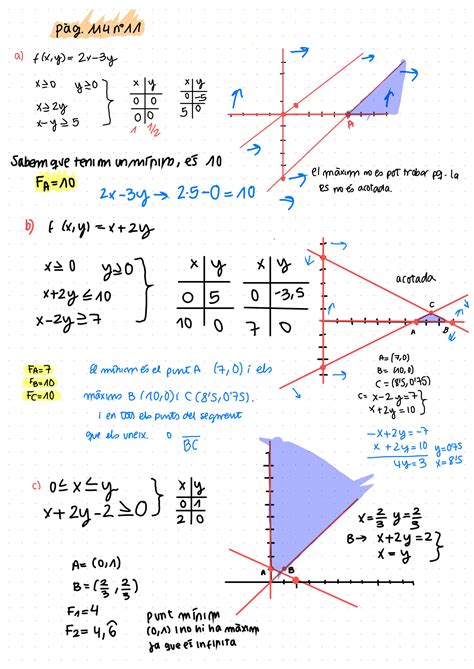 pàg. 114 nº 11
a) f(x,y) = 2x-3y
x≥0 y≥0
x≥2y
x-y≥5
x y
0 0
0 0
1 1/2
x y
0 -5
5 0
A
Sabem que tenim un mínim, és 10
F_A=10
2x-3y → 2·5-0=10
el màxim no es pot trobar pq. la
es no és acotada.
b) f(x,y) = x+2y
x≥0 y≥0
x+2y≤10
x-2y≥7
x y
0 5
10 0
x y
0 -3,5
7 0
acotada
C
A
B
F_A=7
F_B=10
F_C=10
El mínim és el punt A (7,0) i els
màxims B (10,0) i C (8'5,0'75)
i en tots els punts del segment
que els uneix. o B̅C̅
A=(7,0)
B=(10,0)
C=(8'5,0'75)
C= x-2y=7
x+2y=10
-x+2y=-7
x+2y=10
4y=3
y=0'75
x=8'5
c) 0≤x≤y
x+2y-2≥0
x y
0 1
2 0
A B
x=2/3 y=2/3
B→ x+2y=2
x=y
A=(0,1)
B=(2/3, 2/3)
F1=4
F2=4,6̂
punt mínim
(0,1) i no hi ha màxim
ja que és infinita